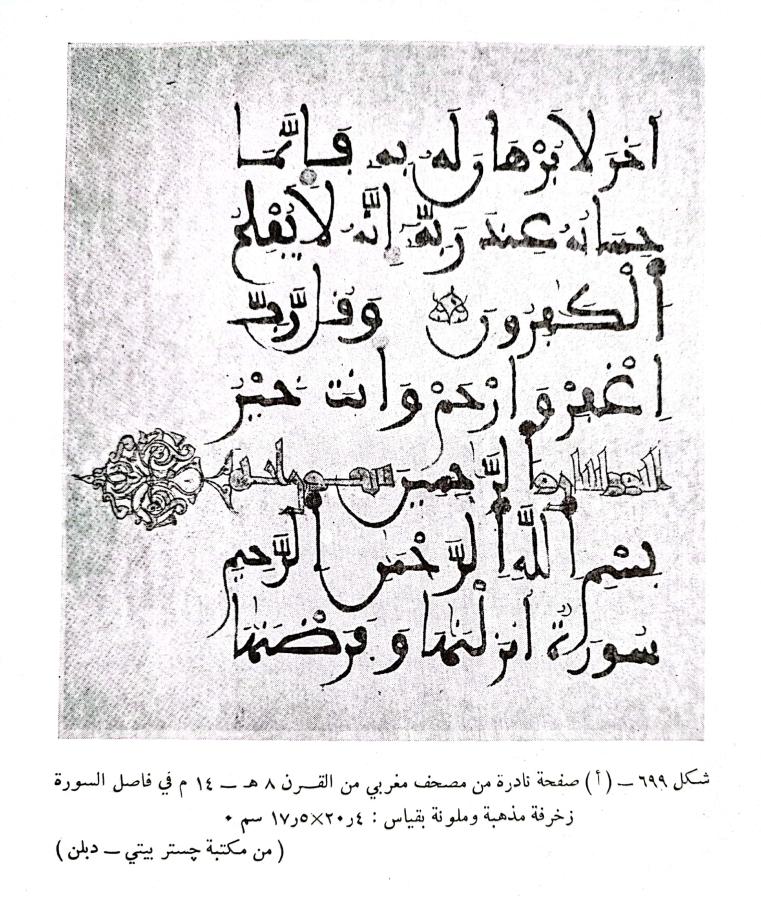 ءَاخَرَ لَا بُرْهَٰنَ لَهُۥ بِهِۦ فَإِنَّمَا
حِسَابُهُۥ عِندَ رَبِّهِۦٓ إِنَّهُۥ لَا يُفْلِحُ
اَ۬لْكَٰفِرُونَ وَقُل رَّبِّ
اِ۪غْفِرْ وَارْحَمْ وَأَنتَ خَيْرُ
اُ۬لرَّٰحِمِينَ
بِسْمِ اِ۬للَّهِ اِ۬لرَّحْمَٰنِ اِ۬لرَّحِيمِ
سُورَةٌ اَنزَلْنَٰهَا وَفَرَضْنَٰهَا
شكل ٦٩٩ ــ (أ) صفحة نادرة من مصحف مغربي من القرن ٨ هـ ــ ١٤ م في فاصل السورة
زخرفة مذهبة وملونة بقياس : ٤ر٢٠×٥ر١٧ سم ٠
( من مكتبة چستر بيتي ــ دبلن )